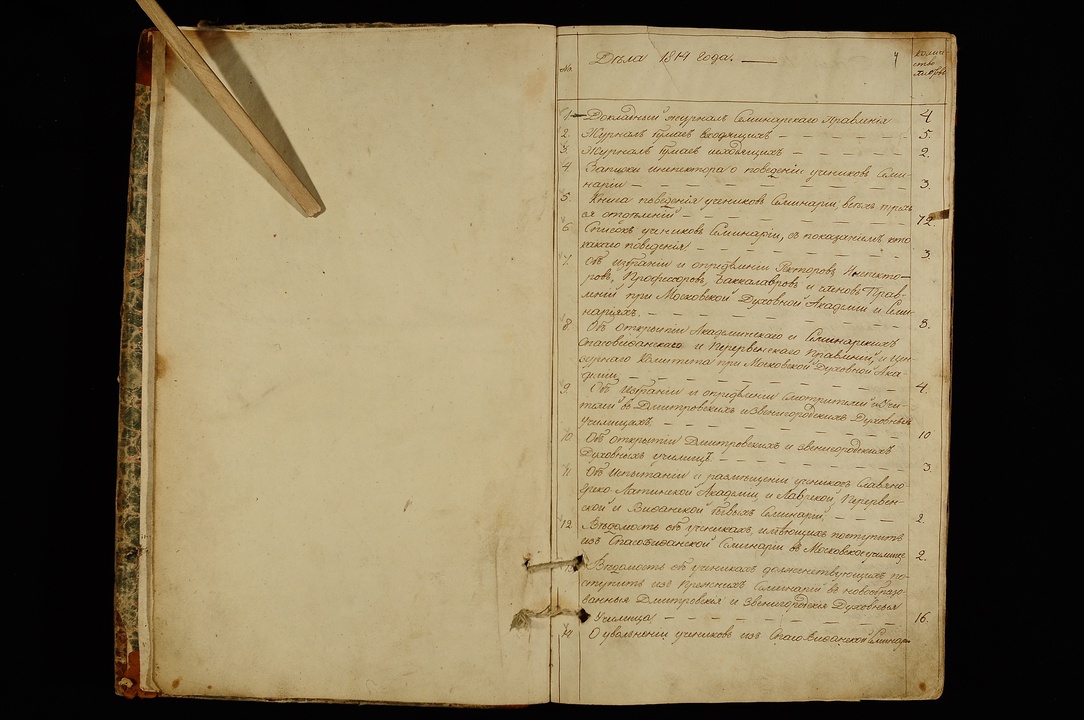 № Дѣла 1814 года. 4 Количе-
ство
листовъ
1. Докладный журналъ Семинарскаго Правленія 4
2. Журналъ бумагъ входящихъ 5.
3. Журналъ бумагъ исходящихъ 2.
4. Записки инспектора о поведеніи учениковъ Семи-
наріи 3.
5. Книга поведенія учениковъ Семинаріи, всѣхъ трехъ
ея отдѣленій 72.
6. Списокъ учениковъ Семинаріи, съ показаніемъ кто
какаго поведенія 3.
7. Объ избраніи и опредѣленіи Ректоровъ, Инспекто-
ровъ, Профессоровъ, Баккалавровъ и членовъ Прав-
леній при Московской Духовной Академіи и Семи-
наріяхъ. 3.
8. Объ открытіи Академическаго и Семинарскихъ
Спасовиѳанскаго и Перервенскаго Правленій, и Цен-
зурнаго Комитета при Московской Духовной Ака-
деміи 4.
9. Объ Избраніи и опредѣленіи Смотрителей и Учи-
телей въ Дмитровскихъ и Звенигородскихъ Духовныхъ
Училищахъ. 10
10. Объ открытіи Дмитровскихъ и Звенигородскихъ
Духовныхъ училищъ. 3.
11. Объ Испытаніи и размѣщеніи учениковъ Славяно-
Греко-Латинской Академіи, и Лаврской, Перервен-
ской и Виѳанской бывыхъ Семинарій. 2.
12. Вѣдомость объ ученикахъ, имѣющихъ поступить
изъ Спасовиѳанской Семинаріи въ Московское училище 2.
Вѣдомость объ ученикахъ долженствующихъ по-
ступить изъ прежнихъ Семинарій въ новообразо-
ванныя Дмитровскія и Звенигородскія Духовныя
Училища 16.
14. О увольненіи учениковъ изъ Спасо-Виѳанской Семинар